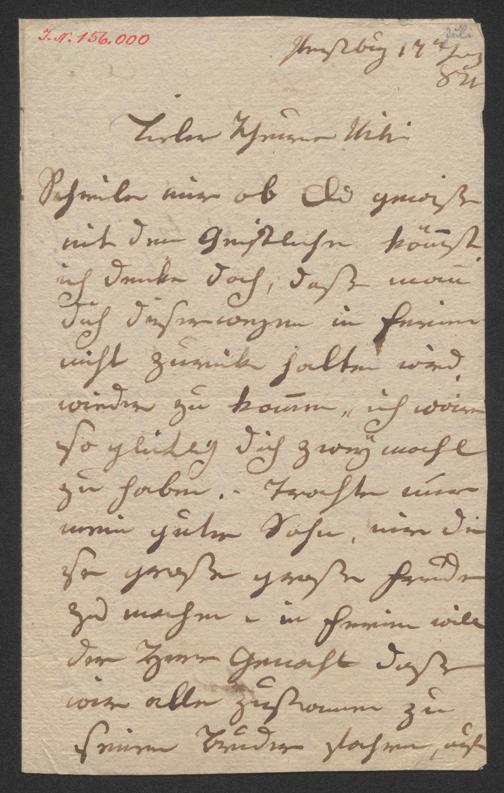 I.N. 156.000
Preßburg 17
Lieber Theurer Niki
Schreibe mir ob Du gewiß
mit dem Geistlichen kömst
ich denke doch, daß man
Dich deswegen in Ferien
nicht zurück halten wird
wieder zu kommen, ich wäre
so glücklich Dich zwey mahl
zu haben. Trachte nur
mein guter Sohn, mir die
se große große Freude
zu machen in Ferien will
der Herr daß
wir alle zusammen zu
seinen Bruder fahren, auf